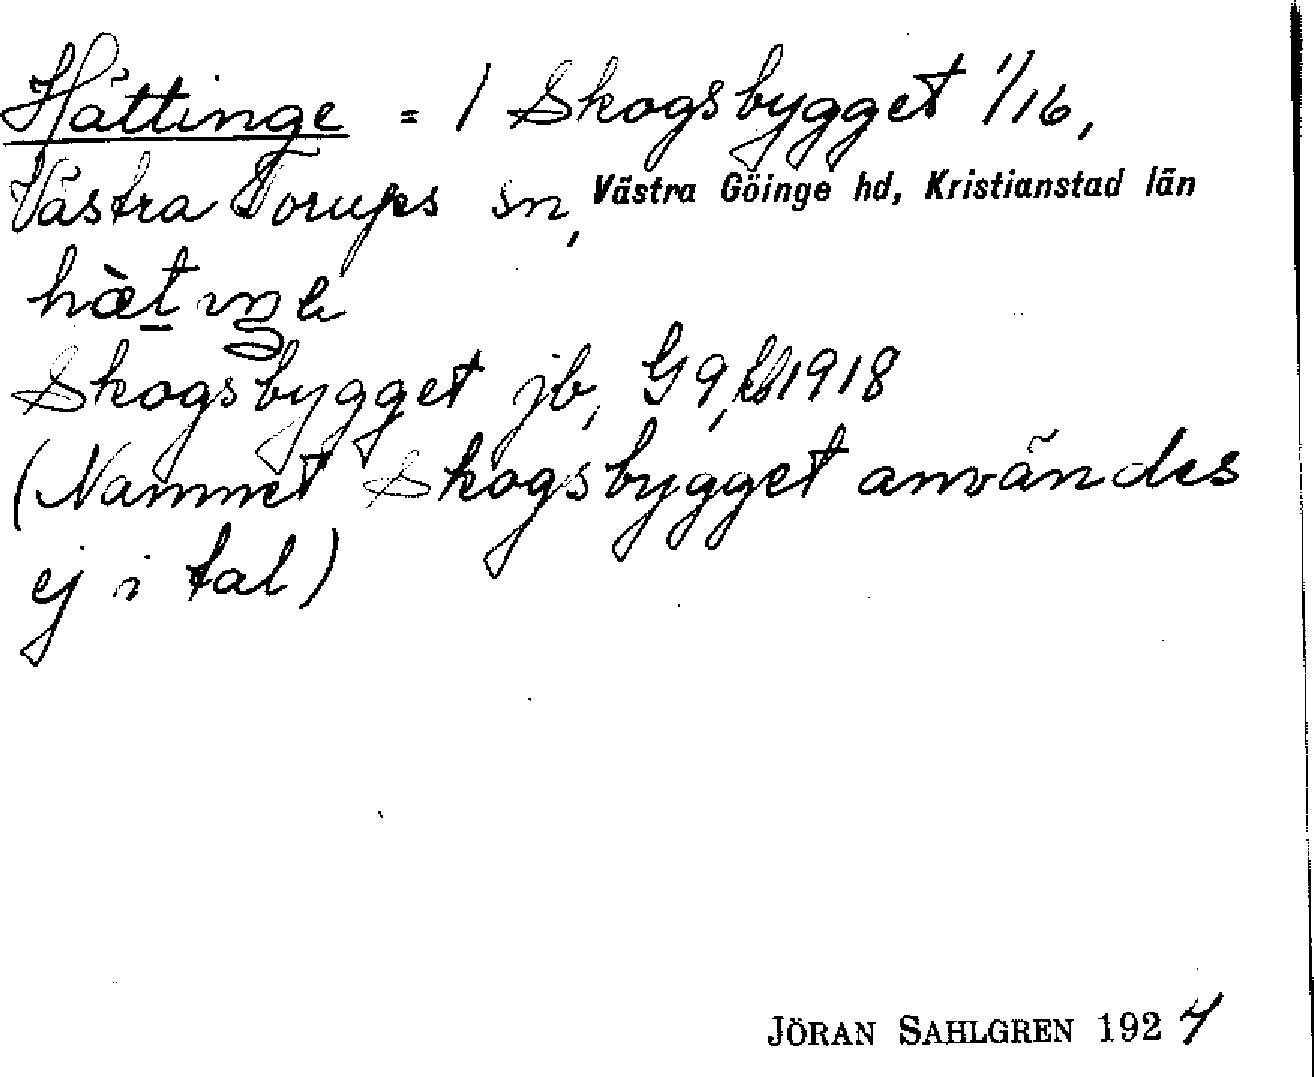 Hättinge = 1 Skogsbygget 1/16,
Västra Torups sn, Västra Göinge hd, Kristianstad län
Skogsbygget jb, G 9, 1918
(Namnet Skogsbygget användes
ej i tal)
JÖRAN SAHLGREN 1924